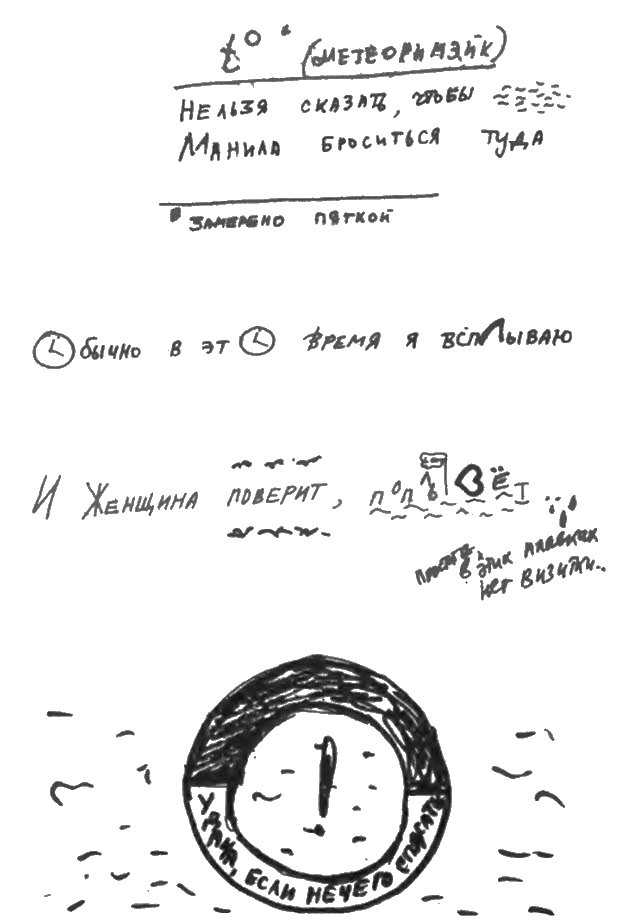 t° * (метеоримэйк)
Нельзя сказать, чтобы
Манила броситься туда
* Замерено пяткой
Обычно в это время я всплываю
И женщина поверит, поплывёт
Простите, в этих плавках
нет визитки..
Удачна, если нечего спасать